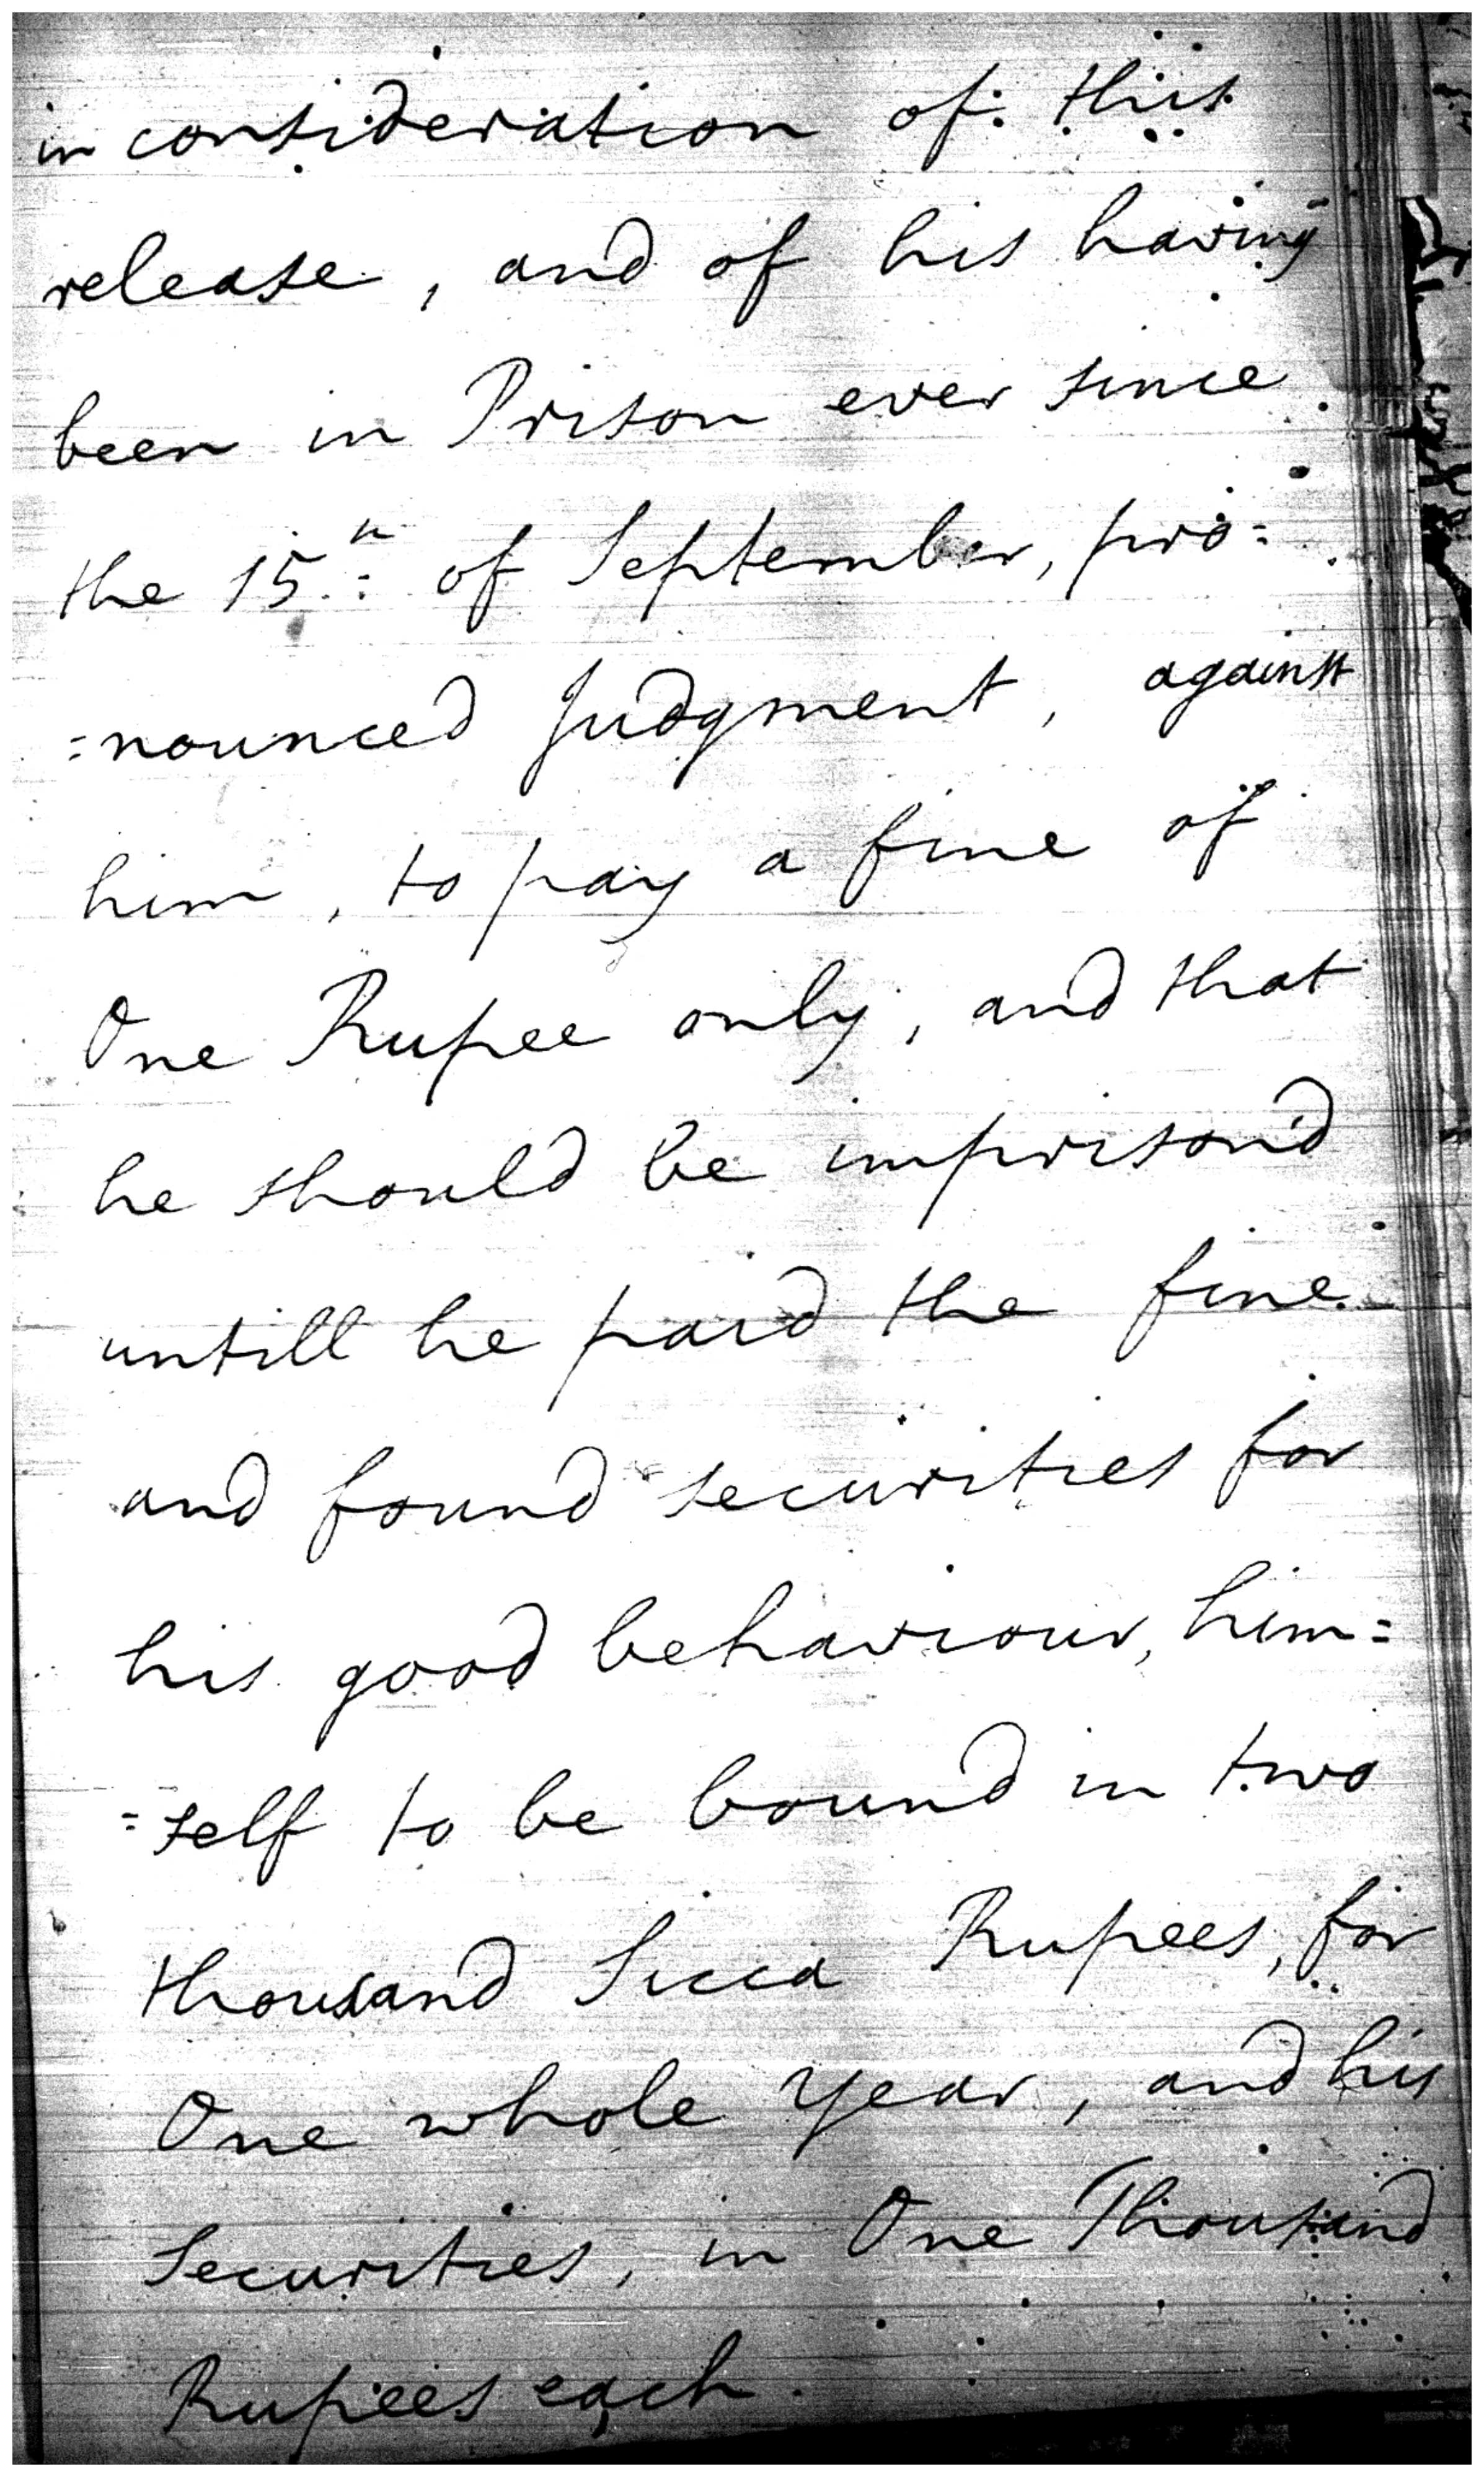 in consideration of this
release, and of his having
been in Prison ever since
the 15.th of September, pro=
=nounced Judgment, against
him, to pay a fine of
One Rupee only, and that
he should be imprison'd
untill he paid the fine
and found securities for
his good behaviour, him=
=self to be bound in two
thousand Sicca Rupees, for
One whole year, and his
Securities, in One Thousand
Rupees each.